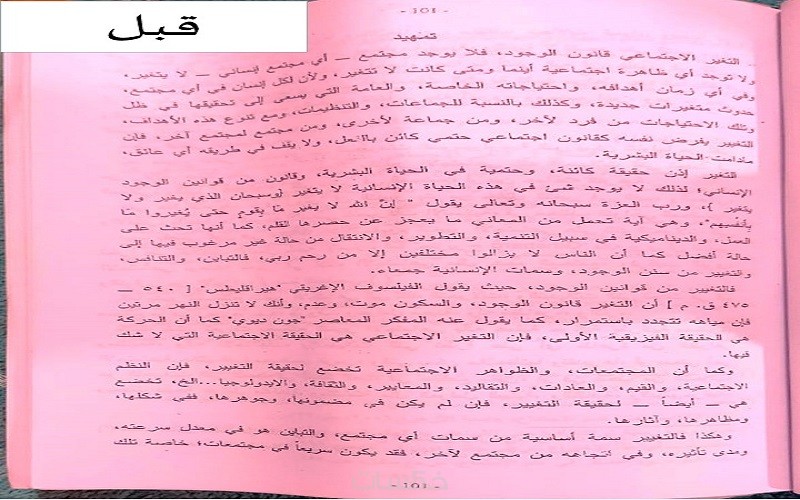 قبل
- 101 -
تمهيد
.. التغير الاجتماعي قانون الوجود، فلا يوجد مجتمع — أي مجتمع إنساني — لا يتغير،
ولا توجد أي ظاهرة اجتماعية أينما ومتى كانت لا تتغير، ولأن لكل إنسان في أي مجتمع،
وفي أي زمان أهدافه، واحتياجاته الخاصة، والعامة التي يسعى إلى تحقيقها في ظل
حدوث متغيرات جديدة، وكذلك بالنسبة للجماعات، والتنظيمات، ومع تنوع هذه الأهداف،
وتلك الاحتياجات من فرد لآخر، ومن جماعة لأخرى، ومن مجتمع لمجتمع آخر، فإن
التغيير يفرض نفسه كقانون اجتماعي حتمي كائن بالفعل، ولا يقف في طريقه أي عائق،
مادامت الحياة البشرية.
التغير إذن حقيقة كائنة، وحتمية في الحياة البشرية، وقانون من قوانين الوجود
الإنساني؛ لذلك لا يوجد شئ في هذه الحياة الإنسانية لا يتغير {وسبحان الذي يغير ولا
يتغير }، ورب العزة سبحانه وتعالى يقول " إنَّ الله لا يغير مَا بِقَومٍ حتى يُغيروا مَا
بِأنفُسهم"، وهي آية تحمل من المعاني ما يعجز عن حصرها القلم، كما أنها تحث على
العمل، والديناميكية في سبيل التنمية، والتطوير، والانتقال من حالة غير مرغوب فيها إلى
حالة أفضل كما أن الناس لا يزالوا مختلفين إلا من رحم ربي، فالتباين، والتنافس،
والتغيير من سنن الوجود، وسمات الإنسانية جمعاء.
فالتغيير من قوانين الوجود، حيث يقول الفيلسوف الإغريقي "هيراقليطس" [ ٥٤٠ —
٤٧٥ ق. م ] أن التغير قانون الوجود، والسكون موت، وعدم، وأنك لا تنزل النهر مرتين
فإن مياهه تتجدد باستمرار، كما يقول عنه المفكر المعاصر "جون ديوي" كما أن الحركة
هي الحقيقة الفيزيقية الأولى، فإن التغير الاجتماعي هي الحقيقة الاجتماعية التي لا شك
فيها.
وكما أن المجتمعات، والظواهر الاجتماعية تخضع لحقيقة التغيير، فإن النظم
الاجتماعية، والقيم، والعادات، والتقاليد، والمعايير، والثقافة، والايدولوجيا...الخ، تخضع
هي — أيضاً — لحقيقة التغيير، فإن لم يكن في مضمونها، وجوهرها، ففي شكلها،
ومظاهرها، وآثارها.
وهكذا فالتغيير سمة أساسية من سمات أي مجتمع، والتباين هو في معدل سرعته،
ومدى تأثيره، وفي اتجاهه من مجتمع لآخر، فقد يكون سريعاً في مجتمعات؛ خاصة تلك
- 101 -